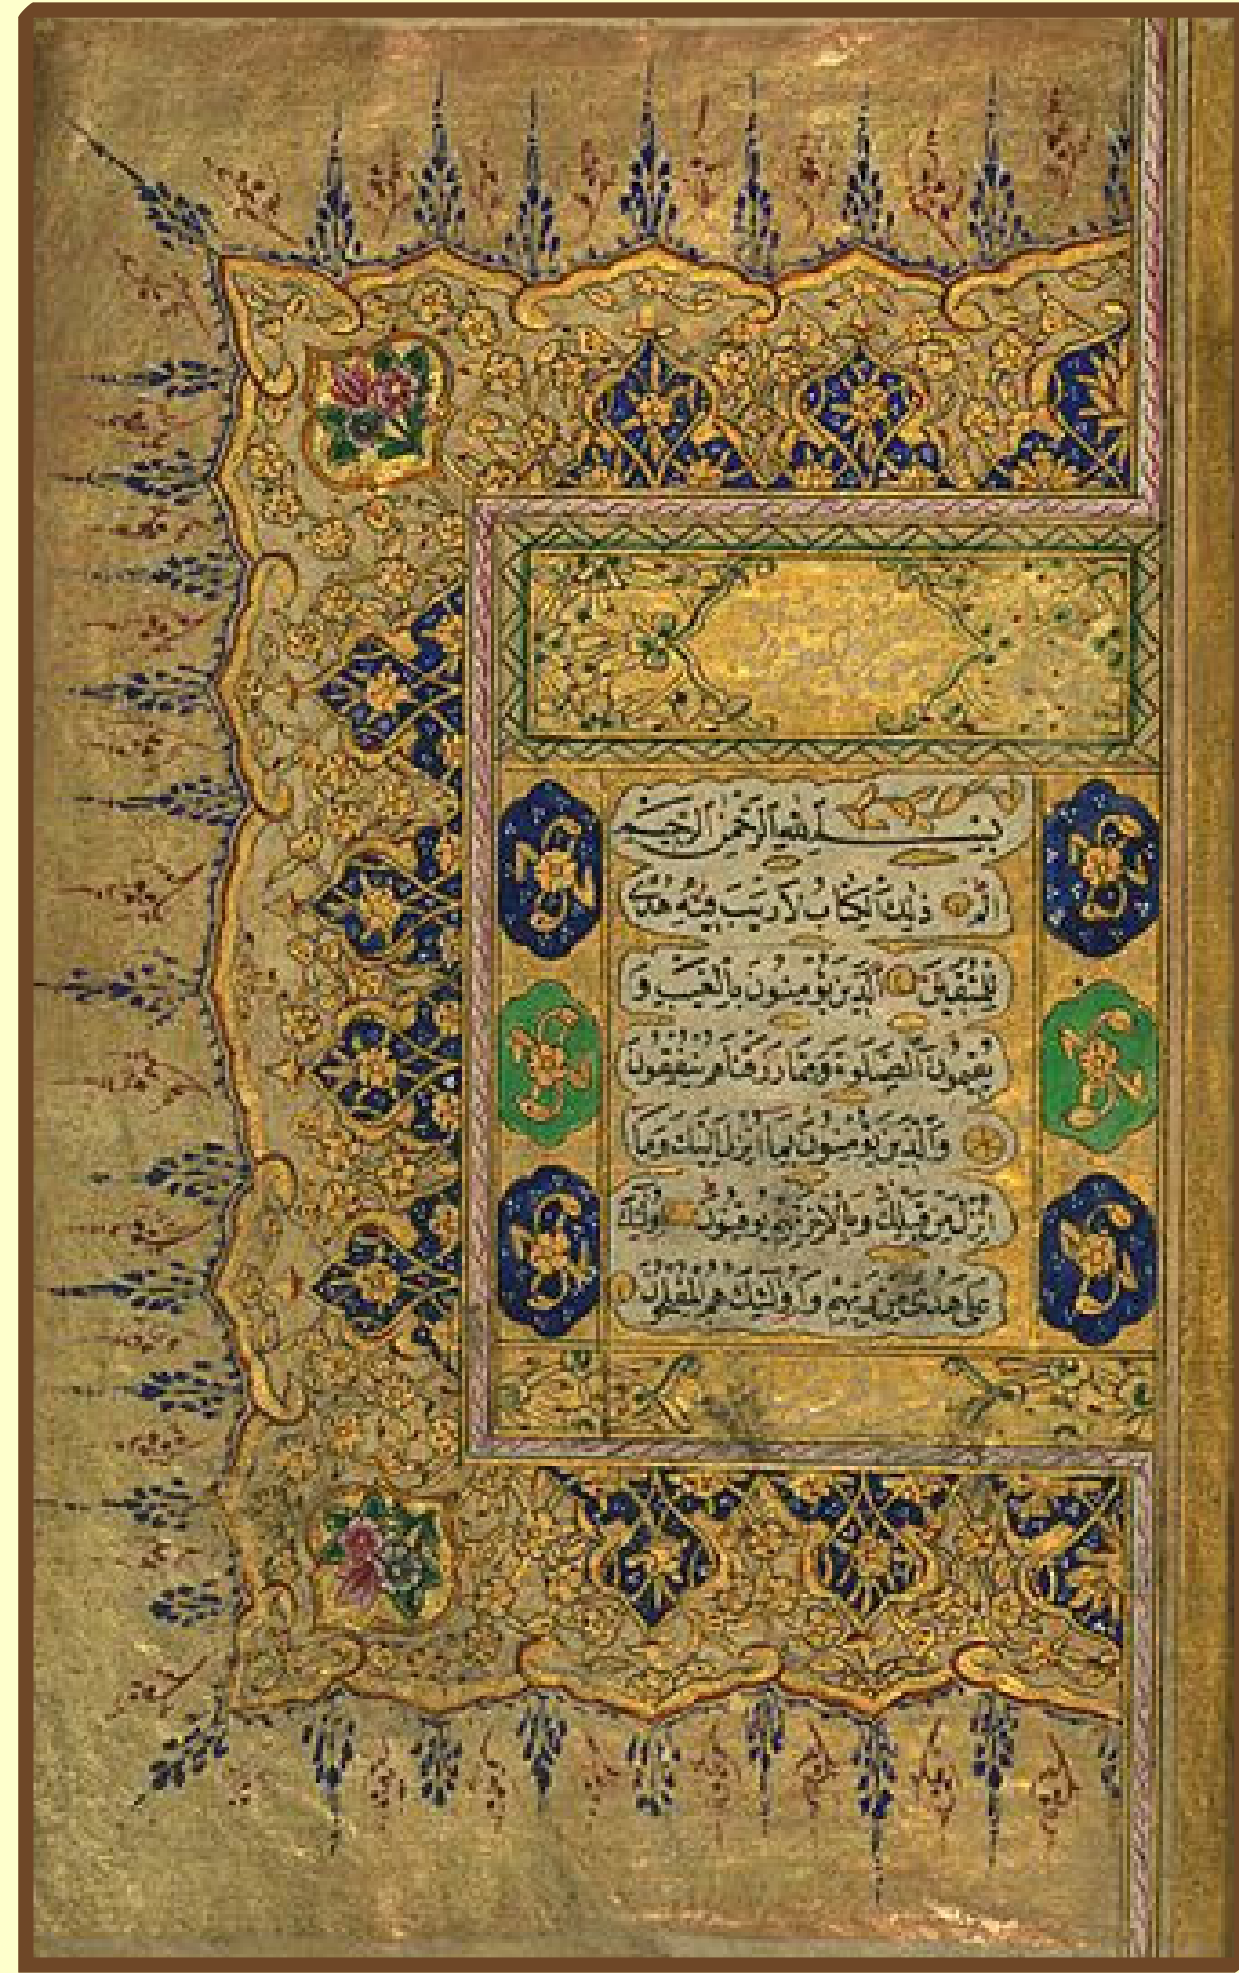 بِسْمِ اللهِ الرَّحْمٰنِ الرَّحِيمِ
الٓمٓ ذٰلِكَ الْكِتَابُ لَا رَيْبَ فِيهِ هُدًى
لِلْمُتَّقِينَ الَّذِينَ يُؤْمِنُونَ بِالْغَيْبِ وَ
يُقِيمُونَ الصَّلٰوةَ وَمِمَّا رَزَقْنَاهُمْ يُنْفِقُونَ
وَالَّذِينَ يُؤْمِنُونَ بِمَا اُنْزِلَ اِلَيْكَ وَمَا
اُنْزِلَ مِنْ قَبْلِكَ وَبِالْاٰخِرَةِ هُمْ يُوقِنُونَ اُولٰئِكَ
عَلٰى هُدًى مِنْ رَبِّهِمْ وَاُولٰئِكَ هُمُ الْمُفْلِحُونَ